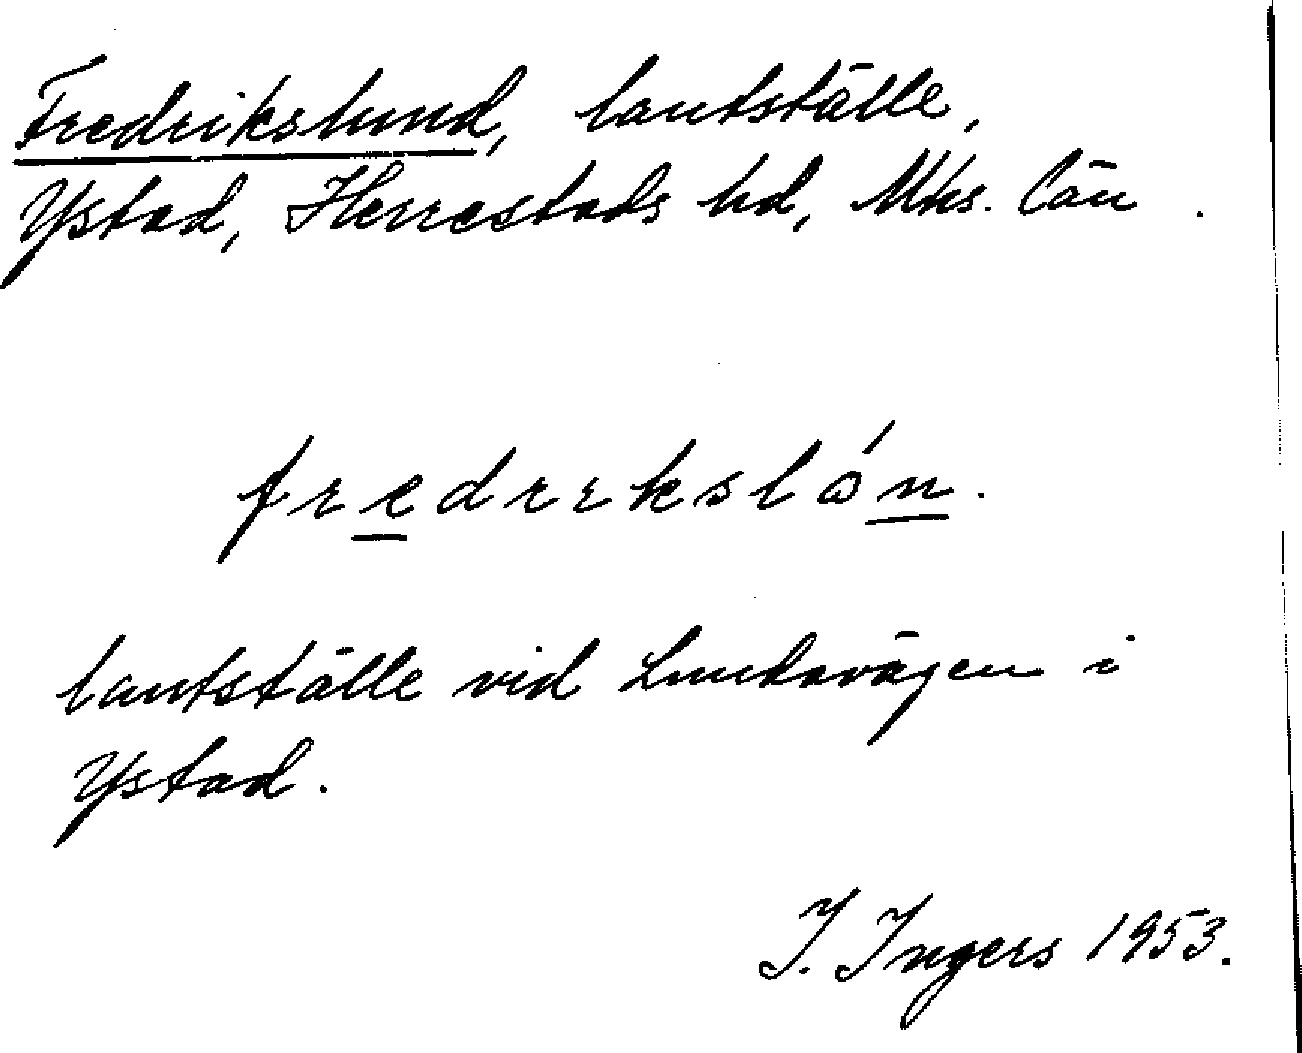 Fredrikslund, lantställe,
Ystad, Herrestads hd, Mhs. län.
fredrekslón.
lantställe vid Lundavägen i
Ystad.
I. Ingers 1953.